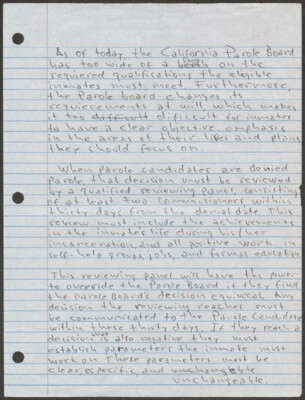 As of today the California Parole Board
has too wide of a range on the
requiered qualifications the elegible
inmates must meet. Furthermore,
the Parole board changes its
requierements at will, which makes
it too difficult for inmates
to have a clear objective emphasis
in the areas of their lives and plans
they should focus on.
When Parole Candidates are denied
Parole, that decision must be reviewed
by a qualified reviewing panel, consisting
of at least two commisioners within
thirty days from the denial date. This
review must include the achievements
in the inmate's life during his/her
incarceration, and all positive work in
self-help groups, jobs, and formal education.
This reviewing panel will have the power
to override the Parole Board if they find
the Parole Board's decision equivocal. Any
decision the reviewing reaches must
be communicated to the Parole Candidate
within these thirty days. If they reach a
decision that is also negative they must
establish parameters the inmate must
work on. These parameters must be
clear, especific, and unchangeable
unchangeable.